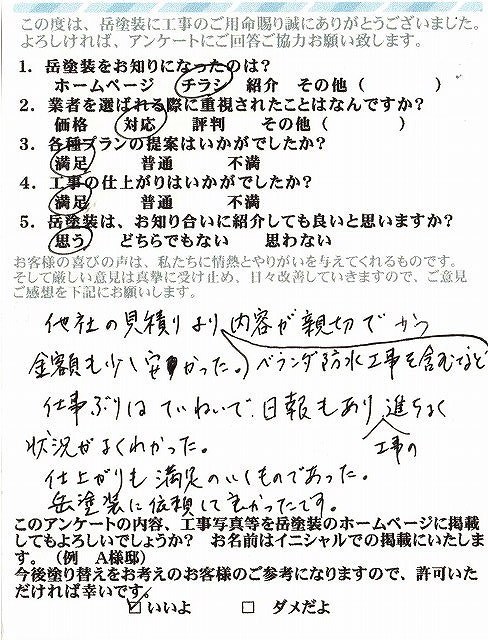 この度は、岳塗装に工事のご用命賜り誠にありがとうございました。
よろしければ、アンケートにご回答ご協力お願い致します。
1．岳塗装をお知りになったのは？
ホームページ　チラシ　紹介　その他（　　　　）
2．業者を選ばれる際に重視されたことはなんですか？
価格　対応　評判　その他（　　　　）
3．各種プランの提案はいかがでしたか？
満足　普通　不満
4．工事の仕上がりはいかがでしたか？
満足　普通　不満
5．岳塗装は、お知り合いに紹介しても良いと思いますか？
思う　どちらでもない　思わない
お客様の喜びの声は、私たちに情熱とやりがいを与えてくれるものです。
そして厳しい意見は真摯に受け止め、日々改善していきますので、ご意見
ご感想を下記にお願いします。
他社の見積りより、内容が親切でかつ
金額も少し安かった。（ベランダ防水工事を含むなど
仕事ぶりはていねいで、日報もあり、進ちょく
工事の
状況がよくわかった。
仕上がりも満足のいくものであった。
岳塗装に依頼して良かったです。
このアンケートの内容、工事写真等を岳塗装のホームページに掲載
してもよろしいでしょうか？　お名前はイニシャルでの掲載にいたしま
す。（例　A様邸）
今後塗り替えをお考えのお客様のご参考になりますので、許可いた
だければ幸いです。
☑ いいよ　□ ダメだよ